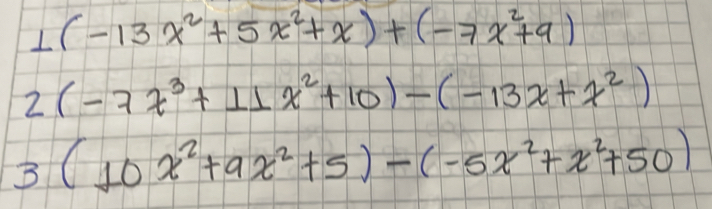 1 (-13x²+5x²+x)+(-7x²+9)
2 (-7x³+11x²+10)-(-13x+x²)
3 (10x²+9x²+5)-(-5x²+x²+50)